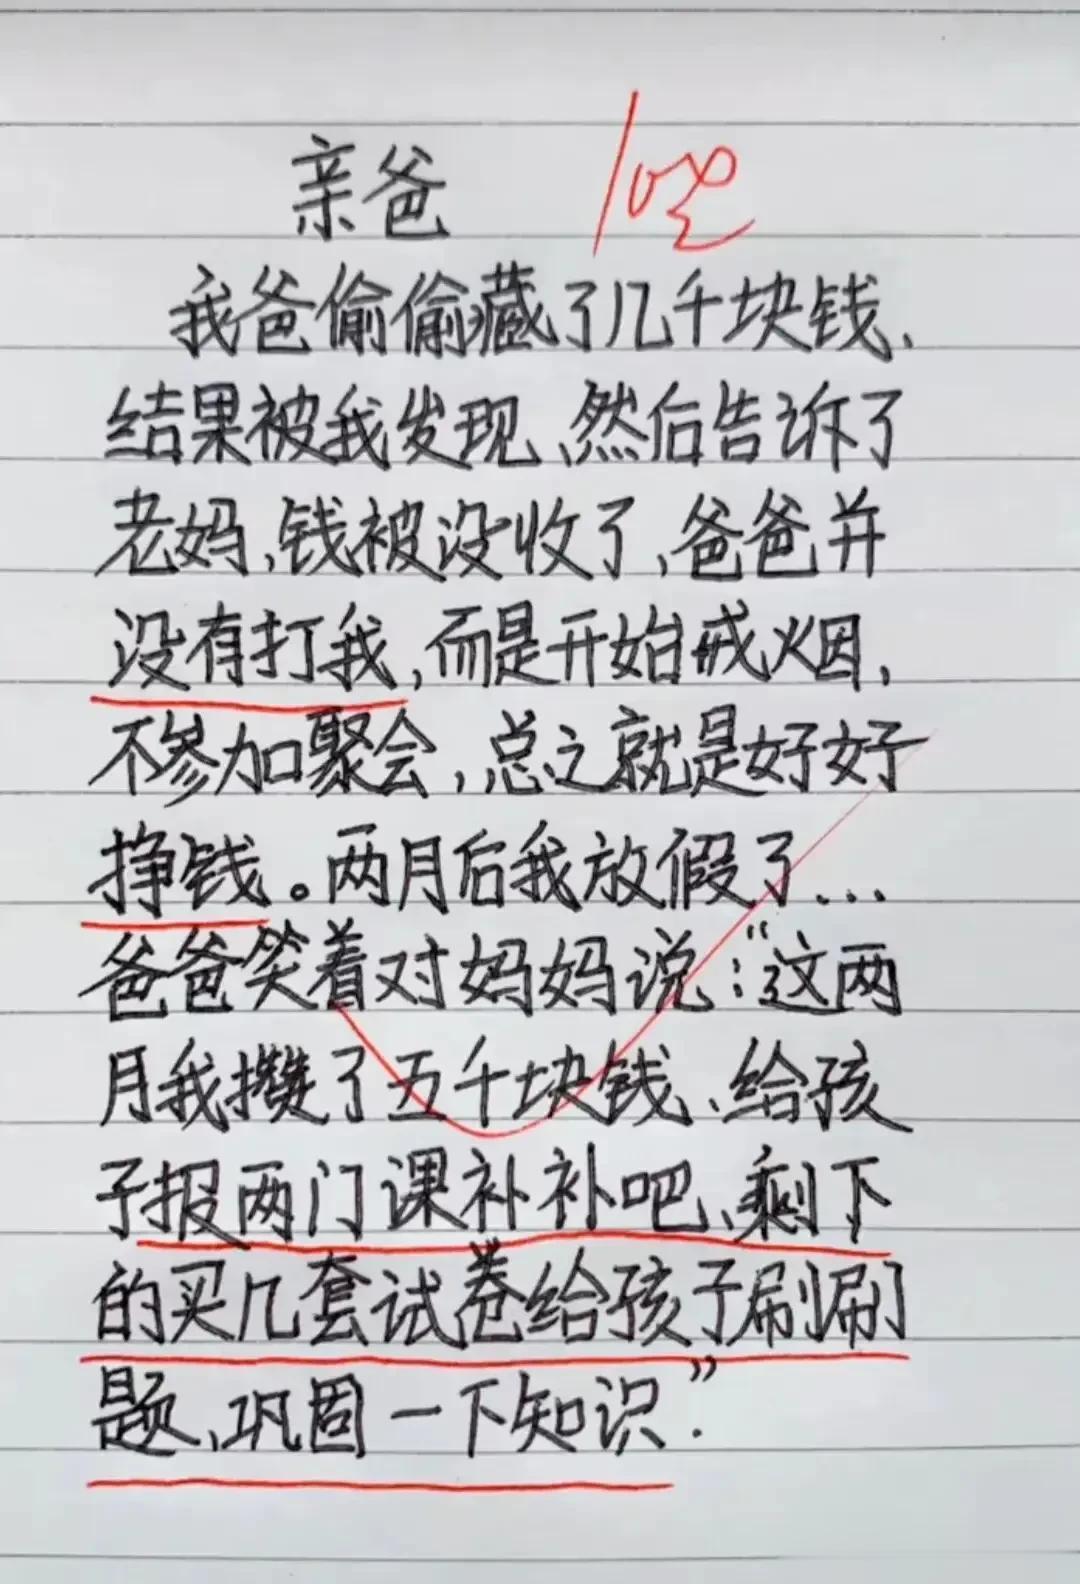 亲爸
我爸偷偷藏了几千块钱、
结果被我发现、然后告诉了
老妈,钱被没收了,爸爸并
没有打我,而是开始戒烟,
不参加聚会,总之就是好好
挣钱。两月后我放假了...
爸爸笑着对妈妈说:“这两
月我攒了五千块钱、给孩
子报两门课补补吧、剩下
的买几套试卷给孩子刷刷
题、巩固一下知识.”